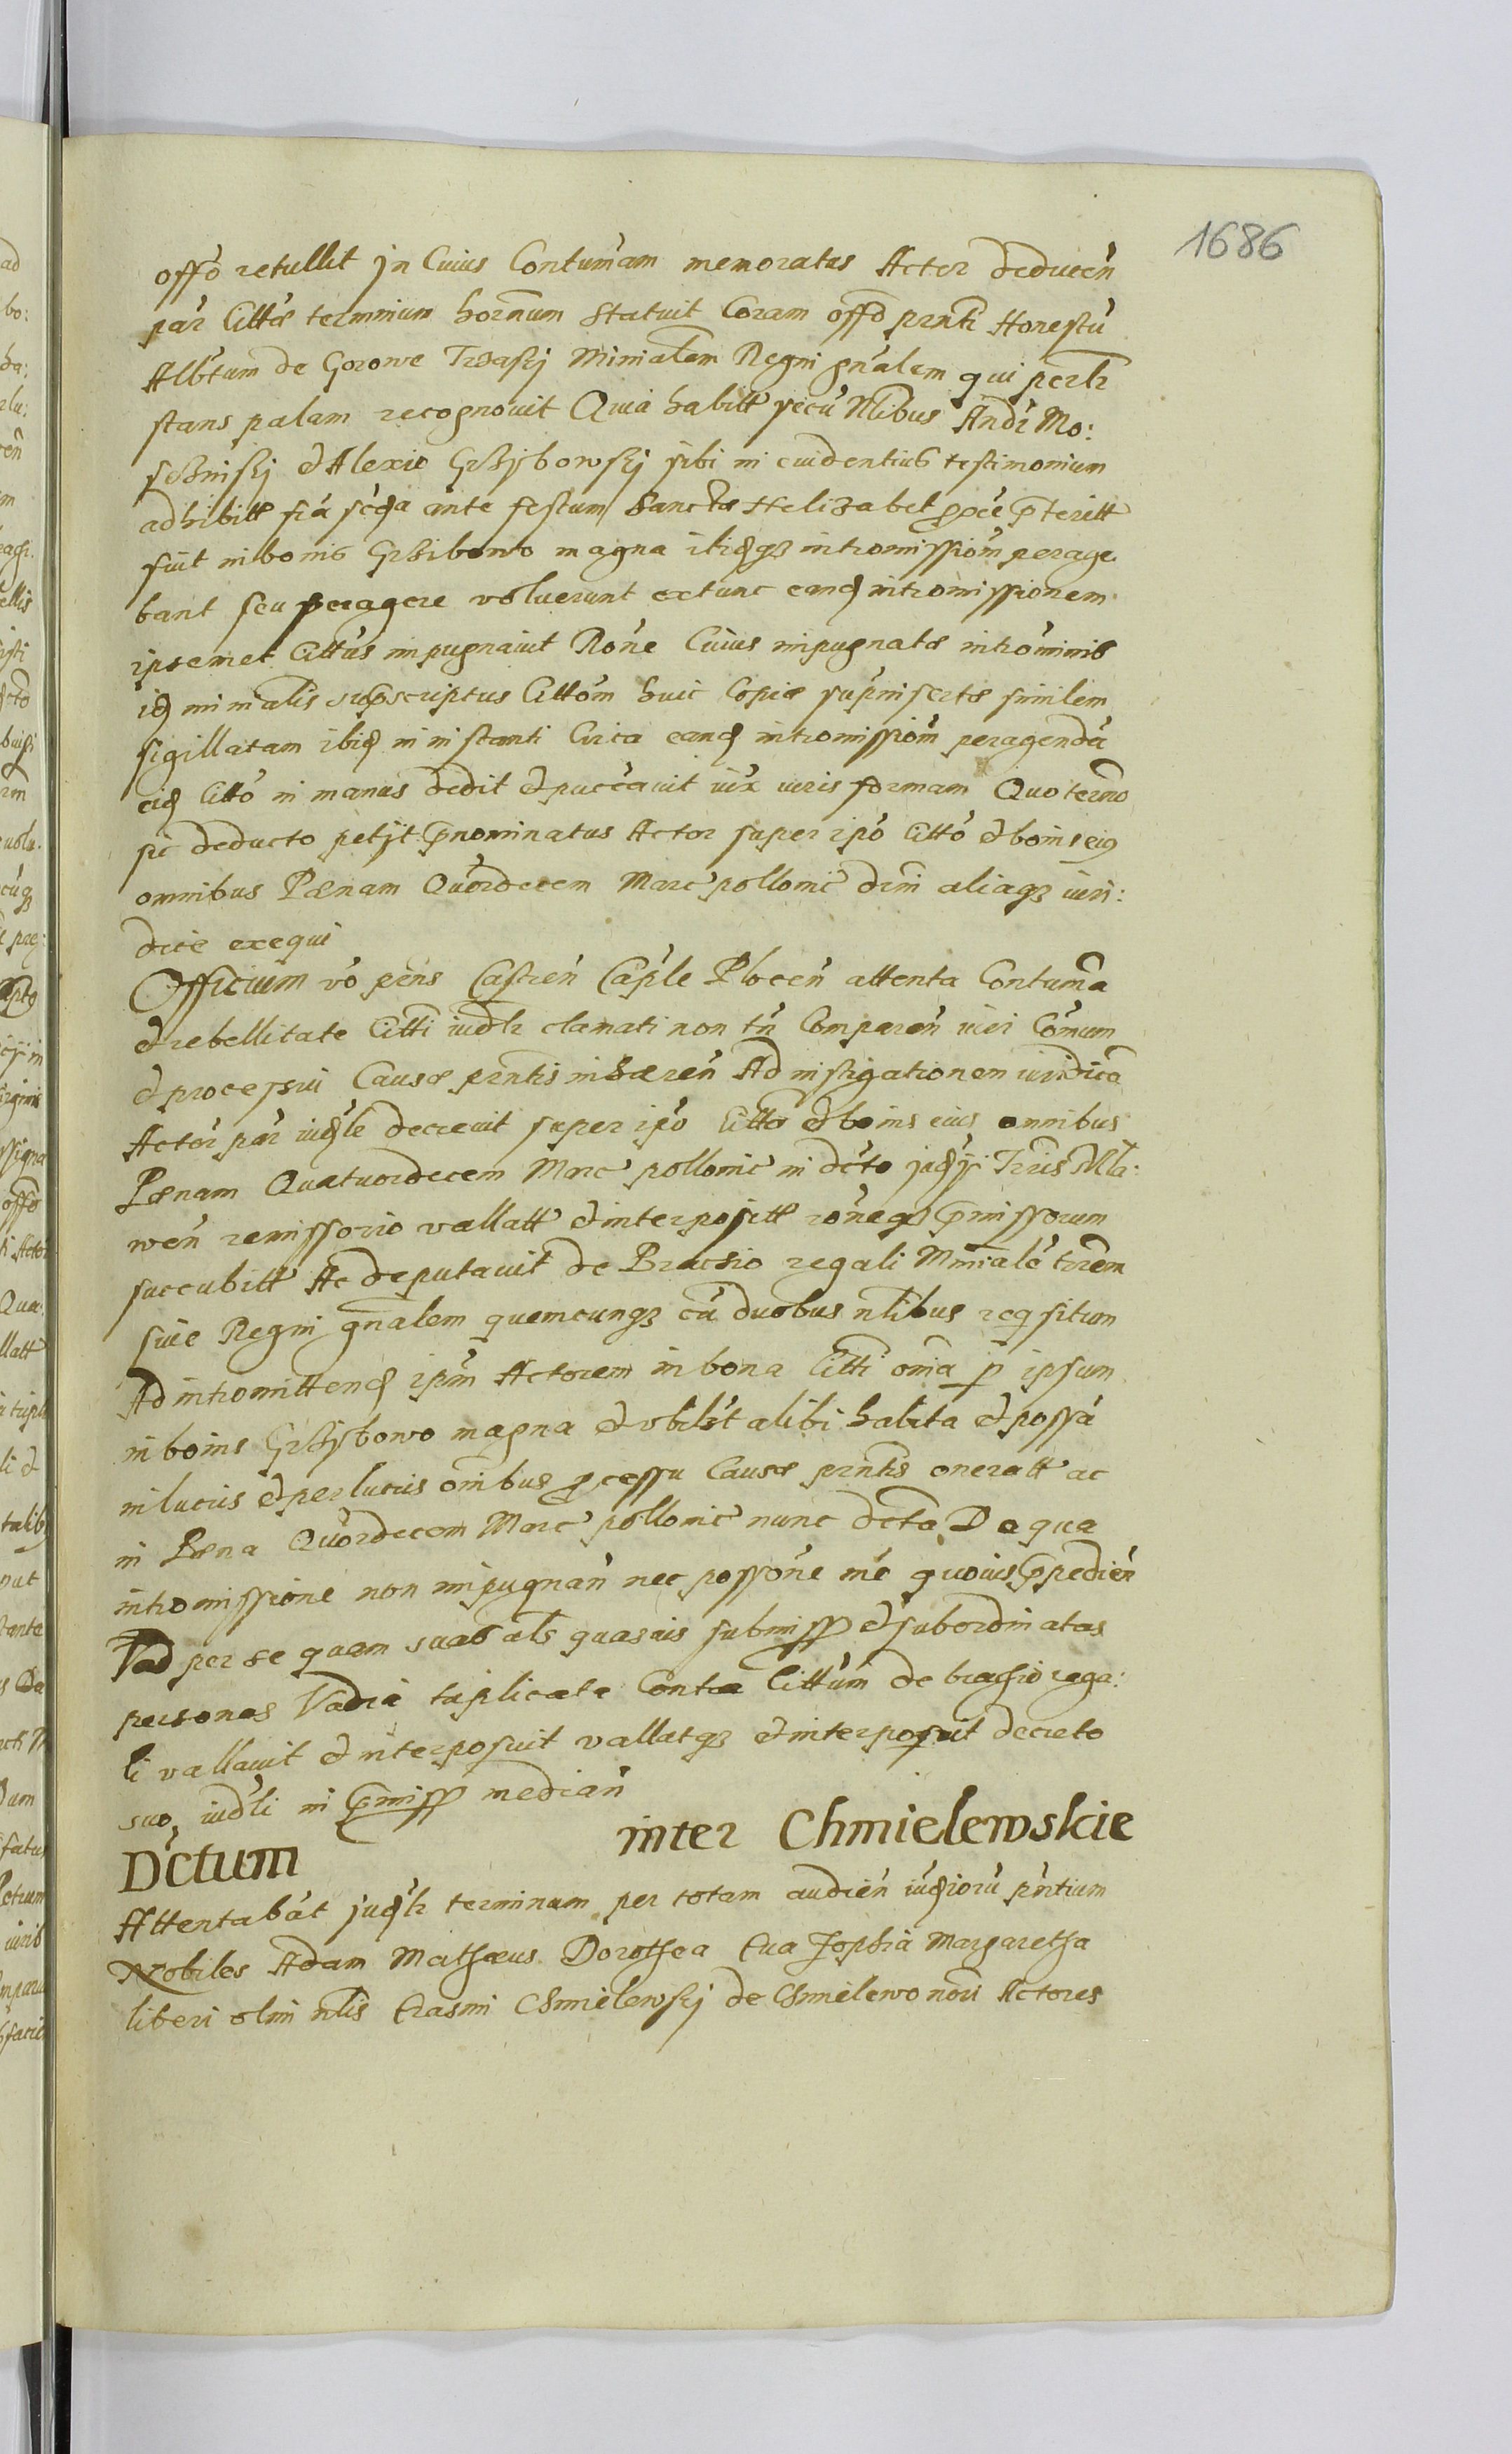 1686
offo retullit jn Cuius Contumam memoratus Actor deducen
par Citta terminum hornum Statuit Coram offo prnti Honestu
Albtum de Gorowe Trzaskj Minialem Regni gnalem qui perlr
stans palam recognovit Quia habitt secu Nlibus Andr Mo:
et Alexio Grzybowskj sibi in evidentius testimonium
adhibitt fia scda ante festum Sancta Helizabet pxie pteritt
fuit in bonis Grzibowo magna ibiqz intromissiom perage
bant seu peragere voluerunt extunc eand intromissionem
ipsemet Cittus impugnavit Rone Cuius impugnata intromnis
id minialis supscriptus Cittom huic Copia supinserta similem
sigillatam ibid in instanti Circa eand intromissiom peragenda
eid Citto in manus dedit et puccavit iux iuris formam Quo termno
sic deducto petijt pnominatus Actor super ipo Citto et bonis eiq
omnibus Pænam Quordecem Marc pollonic aliaqz iuri:
dice exequi
Officium vo pens Castren Caple Plocen attenta Contuma
et rebellitate Citti iudlr clamati non tn Comparen iuri Comum
et processui Causæ prntis inhæren Ad instigationem iuridica
Actor par iudle decrevit super ipo Citto et bonis eius omnibus
Pænam Quatuordecem Marc pollonic in dcto judij Trris Mla:
wen remissorio vallatt et interpositt roneqz pmissorum
succubitt Ac deputavit de Brachio regali Miniale trrem
sive Regni gnalem quemcunqz cu duobus nlibus reqsitum
Ad intromittend ipm Actorem in bona Citti oma p ipsum
in bonis Grzybowo magna et ubilbt alibi habita et possa
in lucris et perlucris omibus pcessu Causæ prntis oneratt ac
in Pæna Quordecem Marc pollonic nunc dcta De qua
intromissione non impugnan nec possone me quovis ppedien
Vad per se quam suas als quasvis submiss et subordinatas
personas Vadia triplicata Contra Cittum de brachio rega:
li vallavit et interposuit vallatqz et interposuit decreto
suo iudli in pmiss median
Dctum inter Chmielewskie
Attentabat judlr terminum per totam audien iudiioru prtium
Nobiles Adam Mathæus Dorothea Eva Zophia Margaretha
liberi olim nlis Erasmi Chmielewskj de Chmielewo Actores